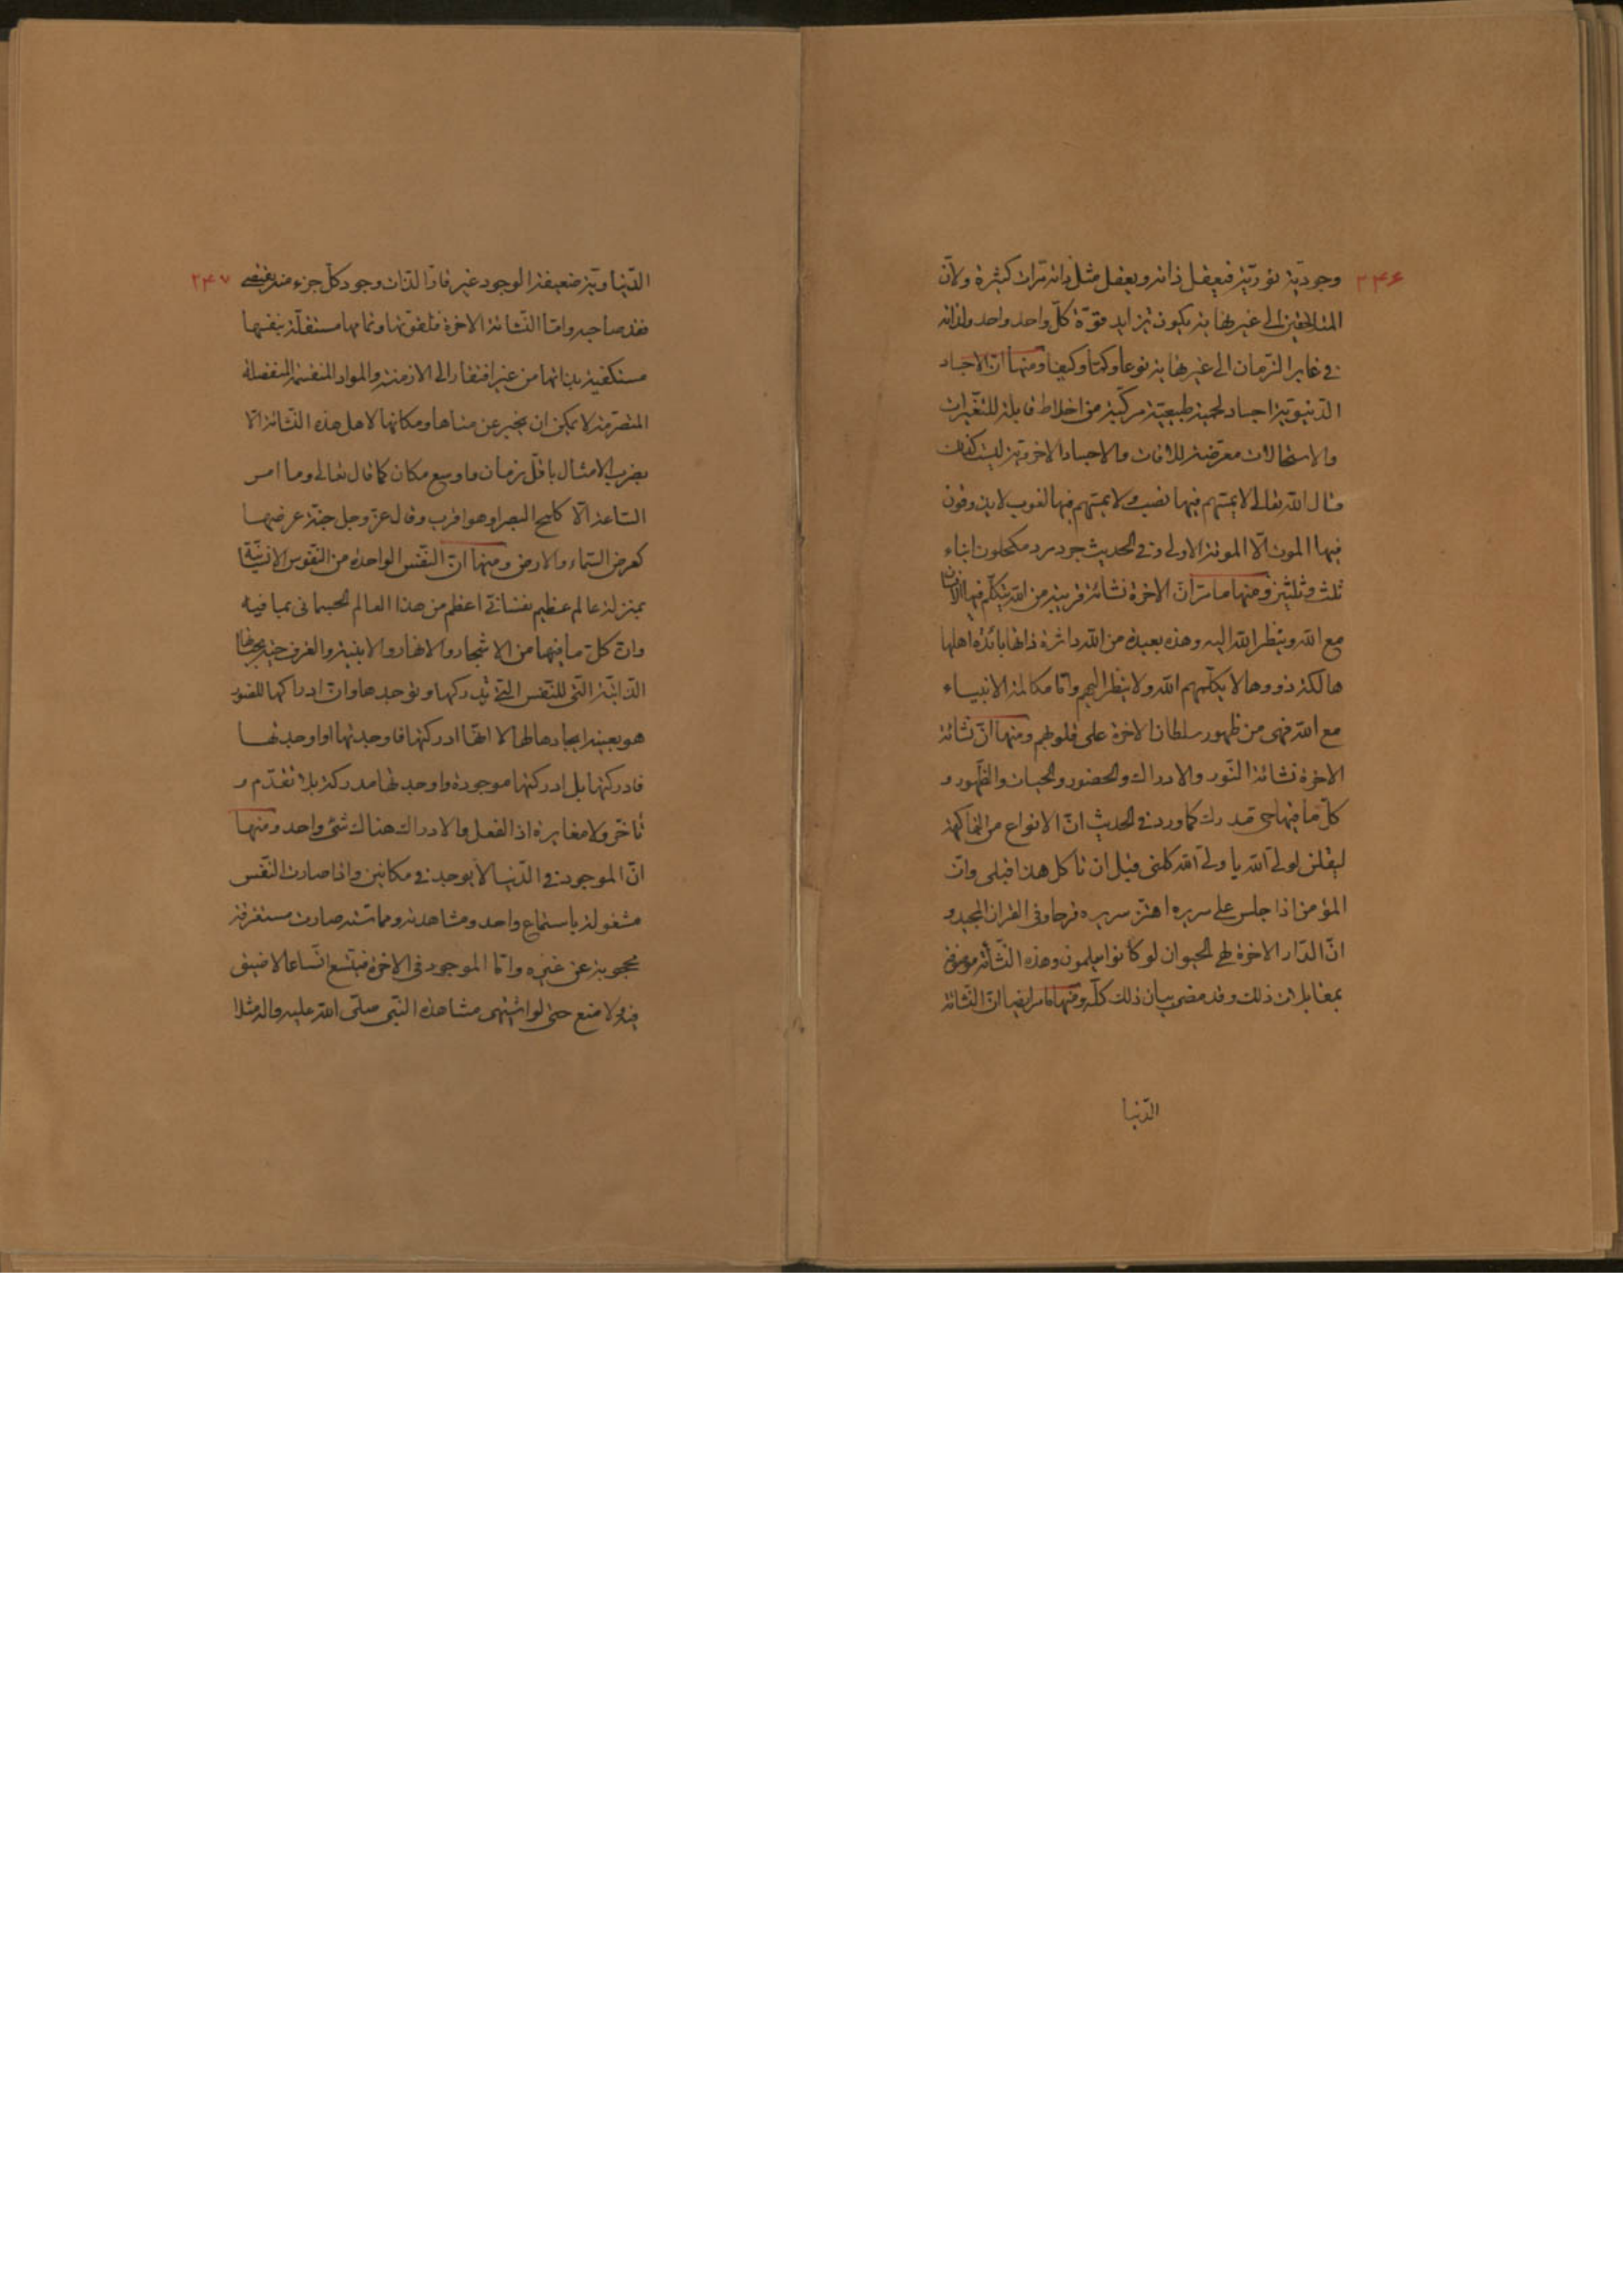 ۲۴۶
وجوديّة نوريّة فيعقل ذاته ويعقل مثل ذاته مرّات كثيرة ولانّ
المتلاحقين الى غير نهاية يكون تزايد قوّة كلّ واحد واحد ولذاته
في غابر الزّمان الى غير نهاية نوعاً وكمّا وكيفا ومنها انّ الاجساد
الدّنيويّة اجساد لحمية طبيعيّة مركّبة من اخلاط قابلة للتغيّرات
والاستحالات معرّضة للافات والاجساد الاخرويّة ليست كذلك
قال الله تعالى لا يمسّهم فيها نصب ولا يمسّهم فيها لغوب لا يذوقون
فيها الموت الّا الموتة الاولى وفي الحديث جرد مرد مكحلون ابناء
ثلث وثلثين ومنها ما مرّ انّ الاخرة نشائة قريبة من الله يتكلّم فيها الانسان
مع الله وينظر الله اليه وهذه بعيدة من الله داثرة ذاتها بائدة اهلها
هالكة ذووها لا يكلّمهم الله ولا ينظر اليهم وامّا مكالمة الانبياء
مع الله فهى من ظهور سلطان الاخرة على قلوبهم ومنها انّ نشائة
الاخرة نشائة النّور والادراك والحضور والحيات والظّهور و
كلّ ما فيها حىّ مدرك كما ورد في الحديث انّ الانواع من الفاكهة
ليقلن لولىّ الله يا ولىّ الله كلنى قبل ان تاكل هذا قبلى وانّ
المؤمن اذا جلس على سريره اهتزّ سريره فرحا وفى القران المجيد و
انّ الدّار الاخرة لهى الحيوان لو كانوا يعلمون وهذه النّشائة موصوفة
بمقابلات ذلك وقد مضى بيان ذلك كلّه ومنها ما مرّ ايضا انّ النّشائة
الدّنيا
۲۴۷
الدّنياويّة ضعيفة الوجود غير قارّ الذّات وجود كلّ جزء منه يقتضى
فقد صاحبه وامّا النّشائة الاخرة فلقوّتها وتمامها مستقلّة بنفسها
مستكفية بذاتها من غير افتقار الى الازمنة والمواد المنقسمة المنفصلة
المتصرّمة لا يمكن ان يخبر عن متاها ومكانها لاهل هذه النّشائة الّا
بضرب الامثال باقلّ زمان واوسع مكان كما قال تعالى وما امر
السّاعة الّا كلمح البصر او هو اقرب وقال عزّ وجل جنّة عرضها
كعرض السّماء والارض ومنها انّ النّفس الواحدة من النّفوس الانسيّة
بمنزلة عالم عظيم نفسانىّ اعظم من هذا العالم الجسمانى بما فيه
وانّ كلّ ما فيها من الاشجار والانهار والابنية والغرف حيّة بحياتها
الذّاتيّة الّتى للنّفس الّتى تدركها وتوجدها وانّ ادراكها للصّور
هو بعينه ايجادها لها لا انّها ادركتها فاوجدتها او اوجدتها
فادركتها بل ادركتها موجودة واوجدتها مدركة بلا تقدّم و
تأخّر ولا مغايرة اذ الفعل والادراك هناك شئ واحد ومنها
انّ الموجود في الدّنيا لا يوجد في مكانين واذا صارت النّفس
مشغولة باستماع واحد ومشاهدته ومماسّته صارت مستغرقة
محجوبة عن غيره وامّا الموجود فى الاخرة فيتّسع اتّساعا لا ضيق
فيه ولا منع حتى لو اشتهى مشاهدة النّبى صلّى الله عليه واله مثلا